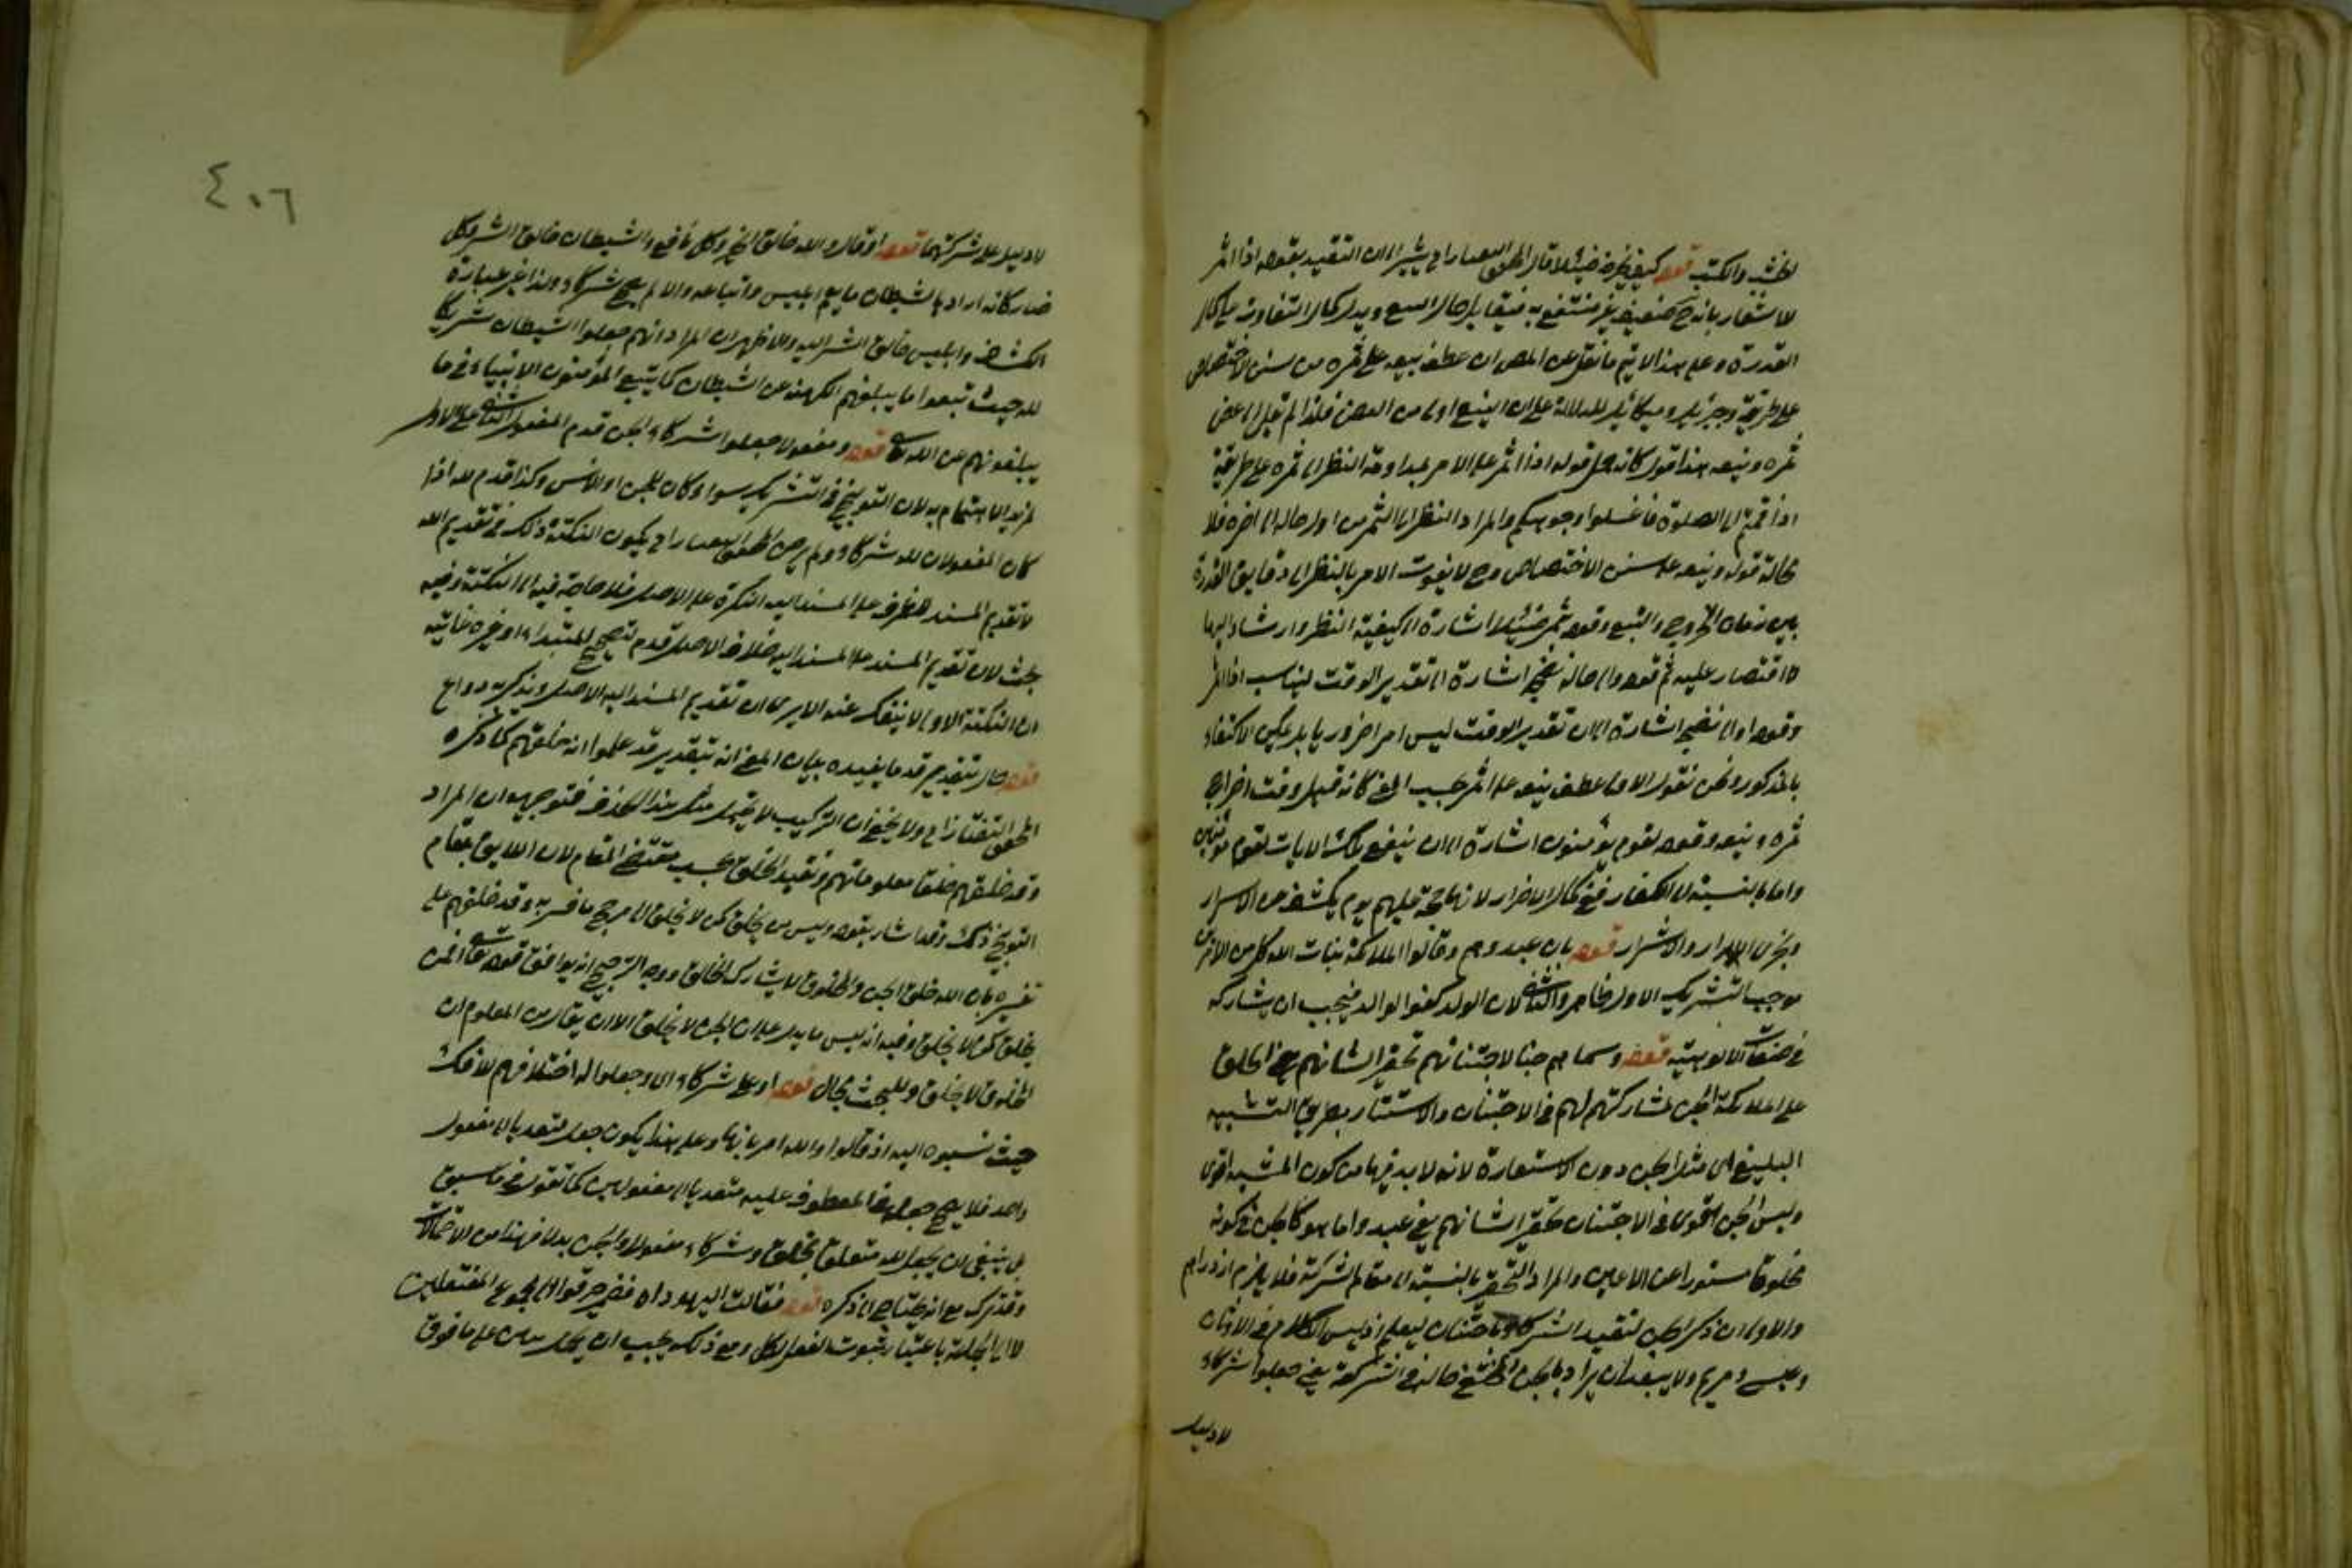 كالخشب والكتب قوله كيف يخرج ضئيلا قال المحقق التفتازاني يشير الى ان التقييد بقوله اذا اثمر
للاشعار بانه ح ضعيف غير منتفع به فيقابل حال الينع ويدل كمال التفاوت على كمال
القدرة وعلى هذا لا يتم ما نقل عن المص ان عطف ينعه على ثمره من سنن الاختصاص
على طريقة وجبريل وميكائيل للدلالة على ان الينع اولى من
ثمره وينعه هذا قوله كانه جعل قوله اذا اثمر على الامر النظر الى ثمره على طريقة
اذا قمتم الى الصلوة فاغسلوا وجوهكم والمراد النظر الى الثمر من اول حاله الى اخره فلا
محالة قوله وينعه على سنن الاختصاص وح لا يفوت الامر بالنظر الى دقايق القدرة
بين زمان الخروج والينع وقوله ثمر ضئيلا اشارة الى كيفية النظر وارشاد اليها
لا اقتصار عليه ثم قوله والى حال نضجه اشارة الى تقدير الوقت ليناسب اذا اثمر
وقوله او الى نضجه اشارة الى ان تقدير الوقت ليس امرا ضروريا بل يمكن الاكتفاء
بالمذكور ونحن نقول الاولى عطف ينعه على اثمر بحسب المعنى كانه قيل وقت اخراج
ثمره وينعه وقوله لقوم يؤمنون اشارة الى ان ينفع تلك الايات لقوم مؤمنين
واما بالنسبة الى الكفار ففي كمال الاضرار لانها حجة عليهم يوم يكشف عن الاسرار
ويخزى الاشرار قوله بان عبدوهم وقالوا الملائكة بنات الله كل من الامرين
موجب لتشريك الاول ظاهر والثاني لان الولد كفو الوالد فيجب ان يشاركه
في صفات الالوهية قوله وسماهم جنا لاجتنانهم تحقيرا لشانهم يعني اطلق
على الملائكة الجن لمشاركتهم لهم في الاجتنان والاستتار بطريق التشبيه
البليغ اى مثل الجن دون الاستعارة لانه لا بد فيها من كون المشبه به اقوى
وليس الجن اقوى في الاجتنان تحقيرا لشانهم يعني عبدوا ما هو كالجن في كونه
مخلوقا مستورا عن الاعين والمراد التحقير بالنسبة الى مقام الشركة فلا يلزم ازدراؤهم
والاولى ان ذكر الجن لتقييد الشركاء بالاجتنان ليعلم انه ليس الكلام في الاوثان
وعيسى ومريم ولا يبعد ان يراد بالجن المختفي حاله في الشركة يعني جعلوا شركاء
لا دليل
٤٠٦
لا دليل على شركتها قوله او قالوا الله خالق الخير وكل نافع والشيطان خالق الشر وكل
ضار كانه اراد بالشيطان ما يعم ابليس واتباعه والا لم يصح شركاء ولذا غير عبارة
الكشاف وابليس خالق الشر اليه والاظهر ان المراد انهم جعلوا الشيطان شريكا
لله حيث تبعوا ما يبلغهم الكهنة عن الشيطان كما يتبع المؤمنون الانبياء في ما
يبلغونهم عن الله تعالى قوله ومفعولا جعلوا شركاء الجن قدم المفعول الثاني على الاول
لمزيد الاهتمام به لان التوبيخ في التشريك سواء كان للجن او للانس وكذا قدم لله اذا
كان المفعولان لله شركاء ولم يرض المحقق التفتازاني بكون النكتة ذلك في تقديم الله
لان تقديم المسند الظرف على المسند اليه النكرة على الاصل فلا حاجة فيه الى النكتة وفيه
بحث لان تقديم المسند على المسند اليه خلاف الاصل قدم لتصحيح المبتداء او غيره غايته
ان النكتة الاولى لا ينفك عنه الا يرى ان تقديم المسند اليه الاصل ويذكر به دواع
قوله حال بتقدير قد ما يفيده بيان المعنى انه بتقدير قد علموا انه خلقهم كما ذكره
المحقق التفتازاني ولا يخفى ان التركيب لا يحتمل مثل هذا الحذف فتوجيهه ان المراد
وقد خلقهم خلقا معلوما لهم وتقييد الخلق بحسب مقتضى المقام لان اللايق بمقام
التوبيخ ذلك وقد اشار بقوله وليس من يخلق كمن لا يخلق الى مرجح ما فسر به وقد خلقهم على
تفسيره بان الله خلق الجن والمخلوق لا يشارك الخالق ووجه الترجيح انه يوافق قوله تعالى افمن
يخلق كمن لا يخلق وفيه انه ليس ما يدل على ان الجن لا يخلق الا ان يقال من المعلوم ان
المخلوق لا يخلق وللبحث مجال قوله او على شركاء اى وجعلوا له اختلاقهم للافك
حيث نسبوه اليه اذ قالوا والله امرنا بها وعلى هذا يكون جعل متعديا الى مفعول
واحد فلا يصح جعله في المعطوف عليه متعديا الى مفعولين كما تقول في ما سبق
بل ينبغي ان يجعل لله متعلقا بخلق وشركاء مفعولا والجن بدلا فهذا من الاحتمالات
وقد ترك مع انه يحتاج الى ذكره قوله فقالت اليهود اه فضمير خرقوا الى مجموع المفتعلين
لا الى الجملة باعتبار ثبوت الفعل للكل ومع ذلك يجب ان يحمل بنين على ما فوق